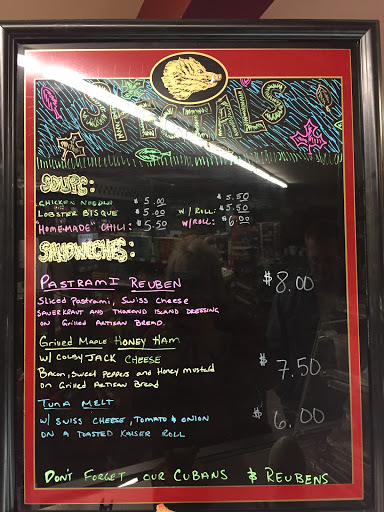 SPECIALS
SOUPS:
CHICKEN NOODLE $5.00 $5.50
LOBSTER BISQUE $5.00 W/ROLL: $5.50
HOMEMADE" CHILI: $5.50 W/ROLL: $6.00
SANDWICHES:
PASTRAMI REUBEN $8.00
Sliced Pastrami, Swiss Cheese
SAUERKRAUT AND THOUSAND ISLAND DRESSING
ON GRILLED ARTISAN BREAD.
Grilled Maple Honey Ham
W/ COLBY JACK CHEESE $7.50
Bacon, Sweet Peppers and Honey Mustard
ON Grilled ARTISAN Bread
TUNA MELT
W/ SWISS CHEESE, TOMATO & ONION $6.00
ON A TOASTED KAISER ROLL
DON'T FORGET OUR CUBANS & REUBENS